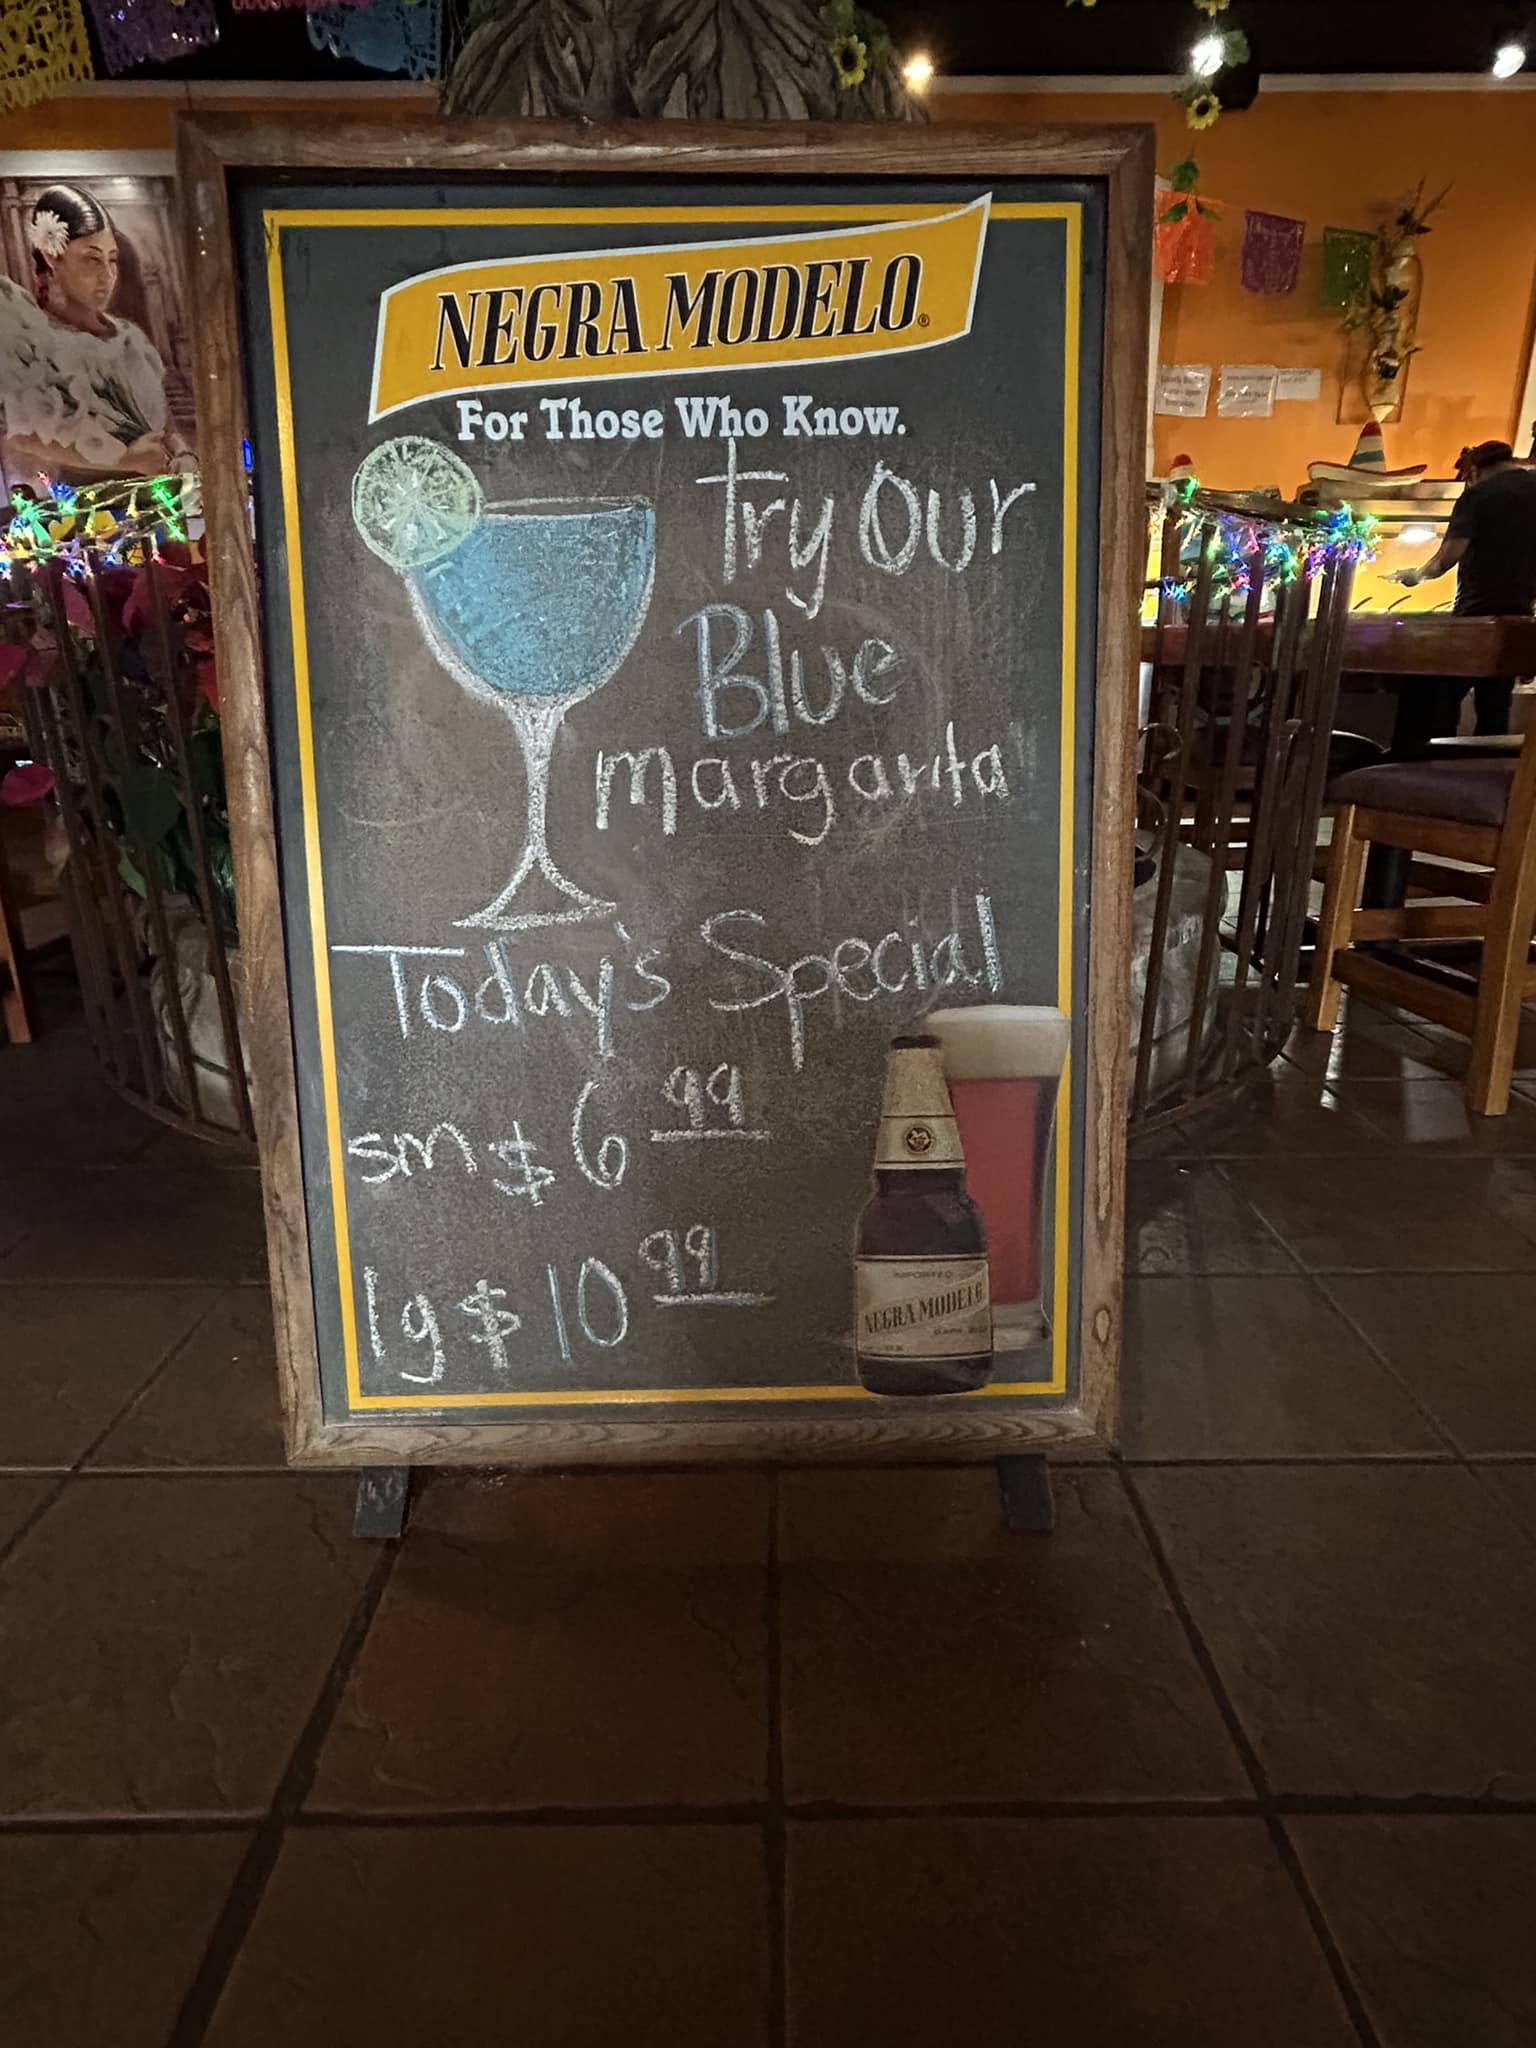 NEGRA MODELO®
For Those Who Know.
Try Our
Blue
margarita
Today's Special
sm $6 99
lg $10 99
IMPORTED
NEGRA MODELO